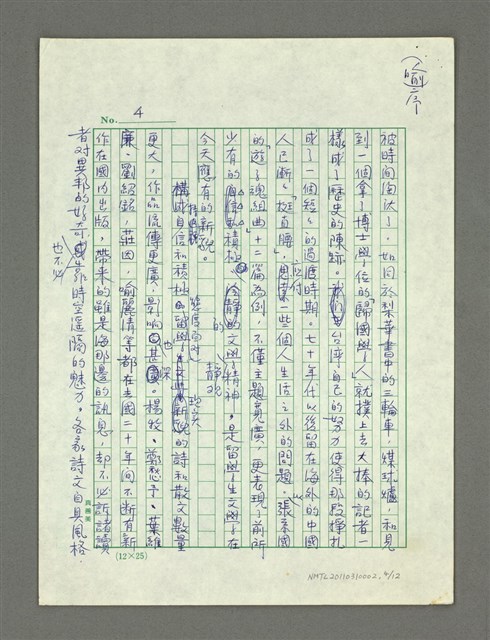 (喻序
No. 4
被時間淘汰了,如同於梨華書中的三輪車,煤球爐,和見
到一個拿了博士學位的歸國學人就撲上去大捧的記者一
樣成了歷史的陳跡。台灣自己的努力使得那段掙扎
成了一個短短的過渡時期。七十年代以後留在海外的中國
人已漸漸「挺直腰」,應付一些個人生活之外的問題。張系國
的「遊子魂組曲」十二篇為例,不僅主題寬廣,更表現了前所
少有的積極冷靜的文學精神,是留學生文學在
今天應有的新貌。
構成自信和積極的態度面對
靜觀
現實
的詩和散文數量
更大,作品流傳更廣,影響也甚深。楊牧、鄭愁予、葉維
廉、劉紹銘、莊因、喻麗清等都在去國二十年間不斷有新
作在國內出版,帶來的雖是海那邊的訊息,却不必訴諸讀
者对異邦的好奇,也不必靠時空遥隔的魅力。各家詩文自具風格,
(12×25)
NMTL20110310002 4/12